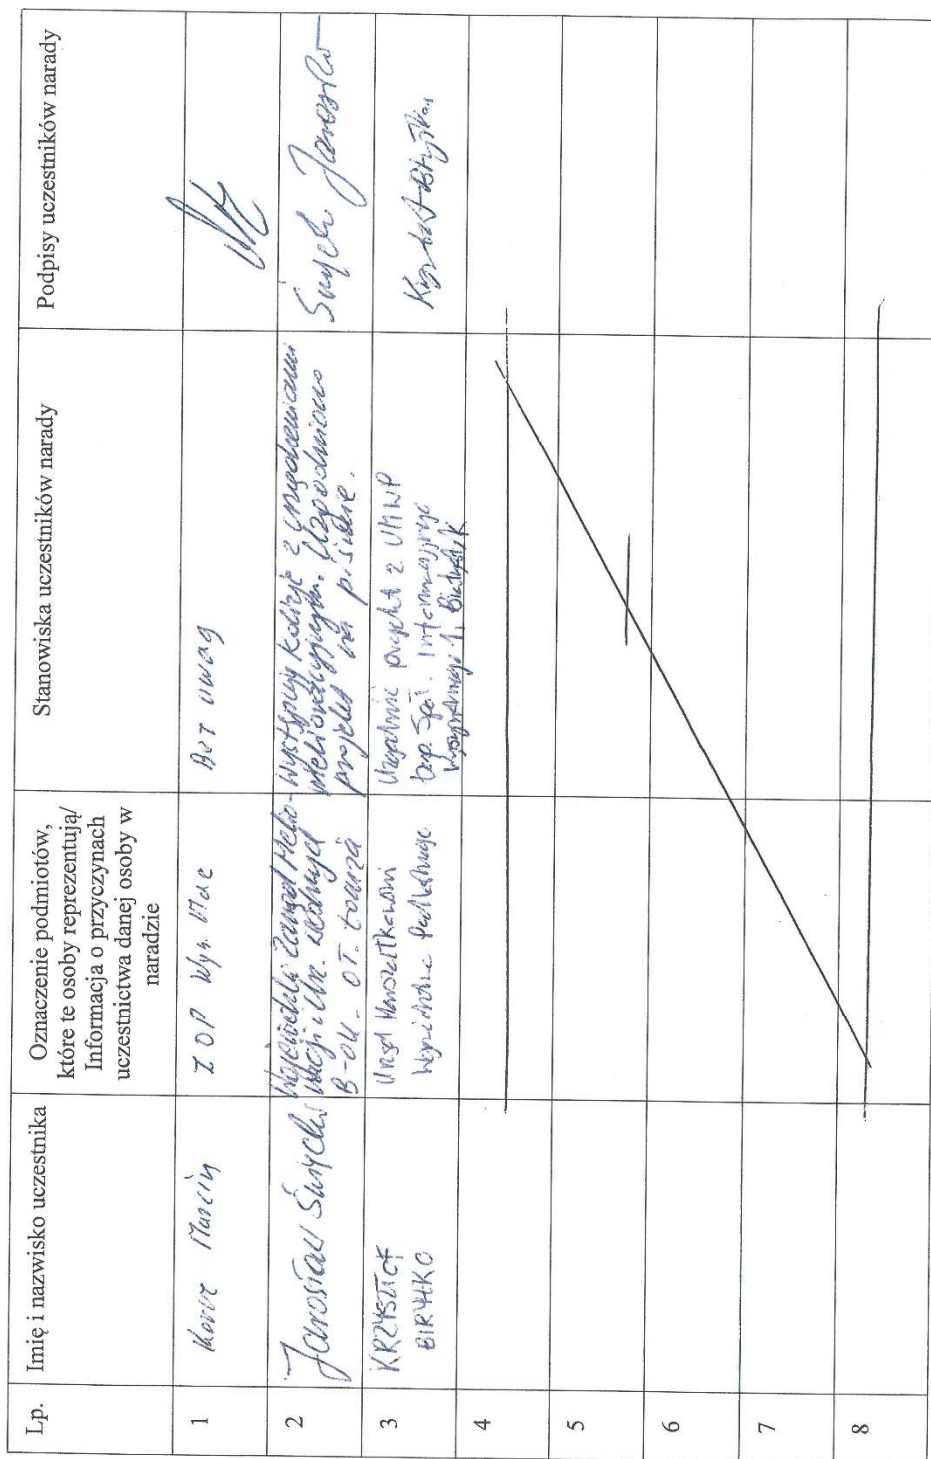 Lp.
Imię i nazwisko uczestnika
Oznaczenie podmiotów,
które te osoby reprezentują/
Informacja o przyczynach
uczestnictwa danej osoby w
naradzie
Stanowiska uczestników narady
Podpisy uczestników narady
1
Marcin
ZOP Wys. Maz
Bez uwag
2
Jarosław Śnycki
Wojewódzki Zarząd Melio-
racji i Urz. Wodnych
B-ok. OT. Łomża
Występują kolizje z urządzeniami
melioracyjnymi. Uzgodniono
projekt na piśmie.
Jarosław
3
KRZYSZTOF
BIRYŁKO
Urząd Marszałkowski
Województwa Podlaskiego
Uzgodnić projekt z UMWP
Dep. Społ. Informacyjnego
1, Białystok
Krzysztof Biryłko
4
5
6
7
8